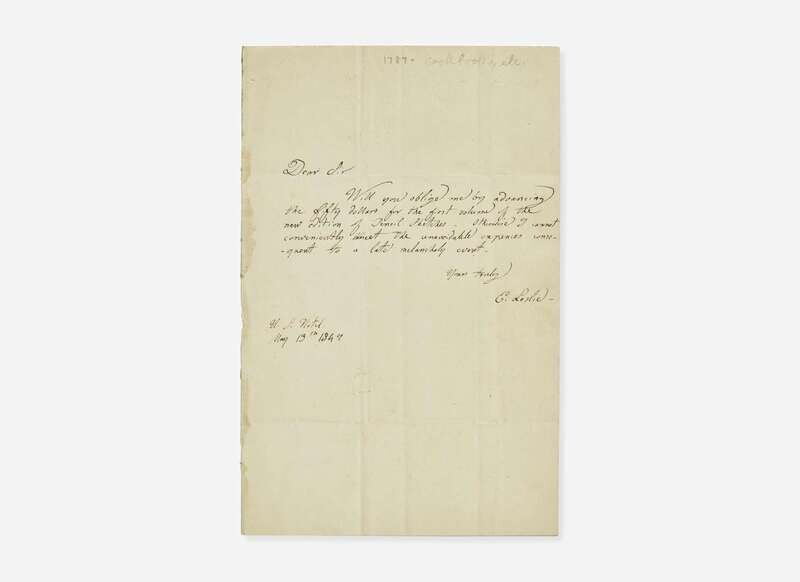 1787. Cookbooks, etc.
Dear Sir
Will you oblige me by advancing
the fifty dollars for the first volume of the
new edition of Pencil Sketches. Otherwise I cannot
conveniently meet the unavoidable expenses conse-
-quent to a late melancholy event.
Yours truly
E. Leslie -
U. S. Hotel
May 13th 1847